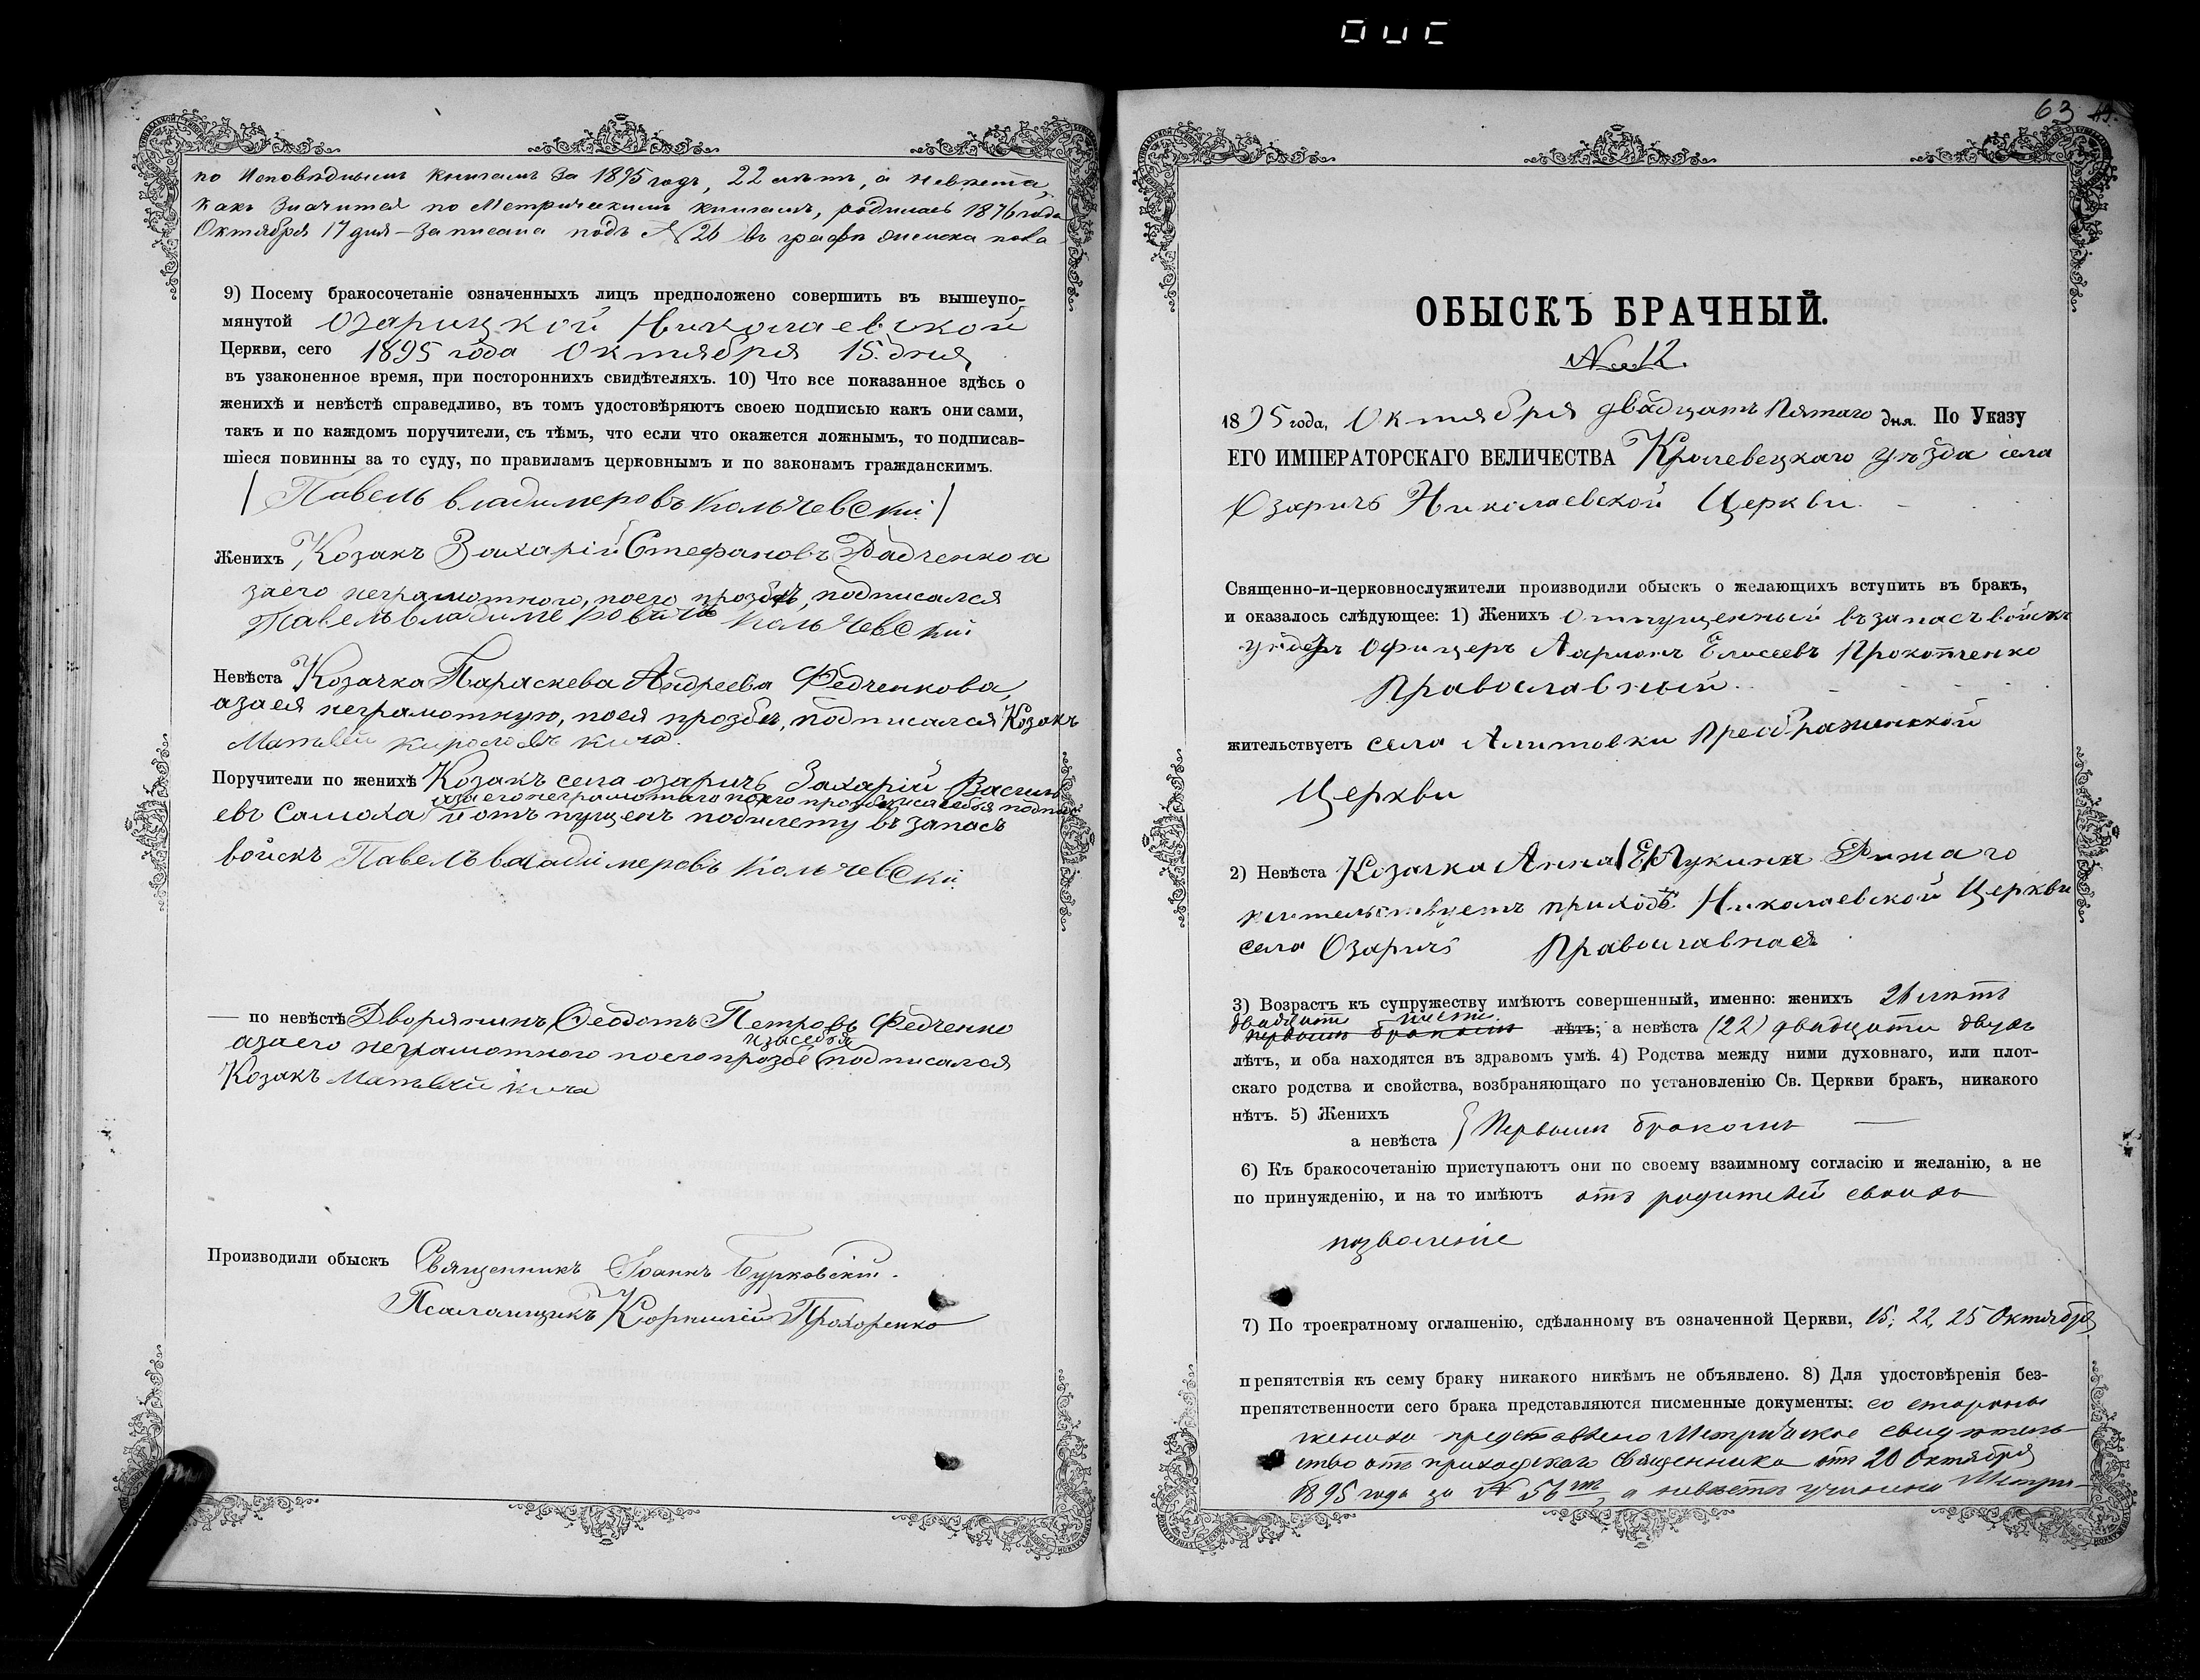 по Исповѣднымъ книгамъ за 1895 годъ, 22 лѣтъ, а невѣста,
какъ значится по Метрическимъ книгамъ, родилась 1876 года
Октября 17 дня – записана подъ № 26 въ графѣ женска пола
9) Посему бракосочетаніе означенныхъ лицъ предположено совершить въ вышеупо-
мянутой Озарицкой Николаевской
Церкви, сего 1895 года Октября 15. дня
въ узаконенное время, при постороннихъ свидѣтеляхъ. 10) Что все показанное здѣсь о
женихѣ и невѣстѣ справедливо, въ томъ удостовѣряютъ своею подписью какъ они сами,
такъ и по каждомъ поручители, съ тѣмъ, что если что окажется ложнымъ, то подписав-
шіеся повинны за то суду, по правиламъ церковнымъ и по законамъ гражданскимъ.
/ Павелъ владимеровъ Кольчевски. /
Женихъ Козакъ Захарій Стефановъ Радченко а
заего неграмотного, поего прозбѣ, подписался
Павелъ владимеровичъ Кольчевскій
Невѣста Козачка Параскева Андреева Федченкова,
азаея неграмотную, поея прозбѣ, подписался Козакъ
Матвѣй Кириловъ Кича.
Поручители по женихѣ Козакъ села озаричъ Захарій Васили
азаего неграмотнаго поего прозбѣ изасебя подпис
евъ Самоха и отъ пущенъ побилету въ запасъ
войскъ Павелъ владимеровъ Кольчевскі.
— по невѣстѣ Дворянинъ Ѳеодотъ Петровъ Федченко
изасебя
азаего неграмотного поего прозбе подписался
Козакъ Матвѣй Кича
Производили обыскъ Священникъ Іоаннъ Бурковскій.
Псаломщикъ Корнилій Прохоренко
63
ОБЫСКЪ БРАЧНЫЙ.
№ 12.
1895 года, Октября двадцать Пятаго дня. По Указу
ЕГО ИМПЕРАТОРСКАГО ВЕЛИЧЕСТВА Кролевецкаго уѣзда села
Озаричъ Николаевской Церкви.
Священно-и-церковнослужители производили обыскъ о желающихъ вступить въ бракъ,
и оказалось слѣдующее: 1) Женихъ Отпущенный въ запасъ войскъ
ундеръ Офицеръ Ларіонъ Елисеевъ Прокопченко
Православный.
жительствуетъ села Алитовки Преображенской
Церкви
2) Невѣста Козачка Анна Лукина
жительствуетъ приходѣ Николаевской Церкви
села Озаричъ Православная
3) Возрастъ къ супружеству имѣютъ совершенный, именно: женихъ 26 лѣтъ
двадцати шести
первымъ бракомъ лѣтъ; а невѣста (22) двадцати двухъ
лѣтъ, и оба находятся въ здравомъ умѣ. 4) Родства между ними духовнаго, или плот-
скаго родства и свойства, возбраняющаго по установленію Св. Церкви бракъ, никакого
нѣтъ. 5) Женихъ
а невѣста } Первымъ бракомъ
6) Къ бракосочетанію приступаютъ они по своему взаимному согласію и желанію, а не
по принужденію, и на то имѣютъ отъ родителей своихъ
позволеніе
7) По троекратному оглашенію, сдѣланному въ означенной Церкви, 15, 22, 25 Октября
препятствія къ сему браку никакого никѣмъ не объявлено. 8) Для удостовѣренія без-
препятственности сего брака представляются писменные документы: со стороны
жениха представлено Метрическое свидѣтель-
ство отъ приходскаго Священника отъ 20 Октября
1895 года за № 56мъ, а невѣсты учинена Метри-